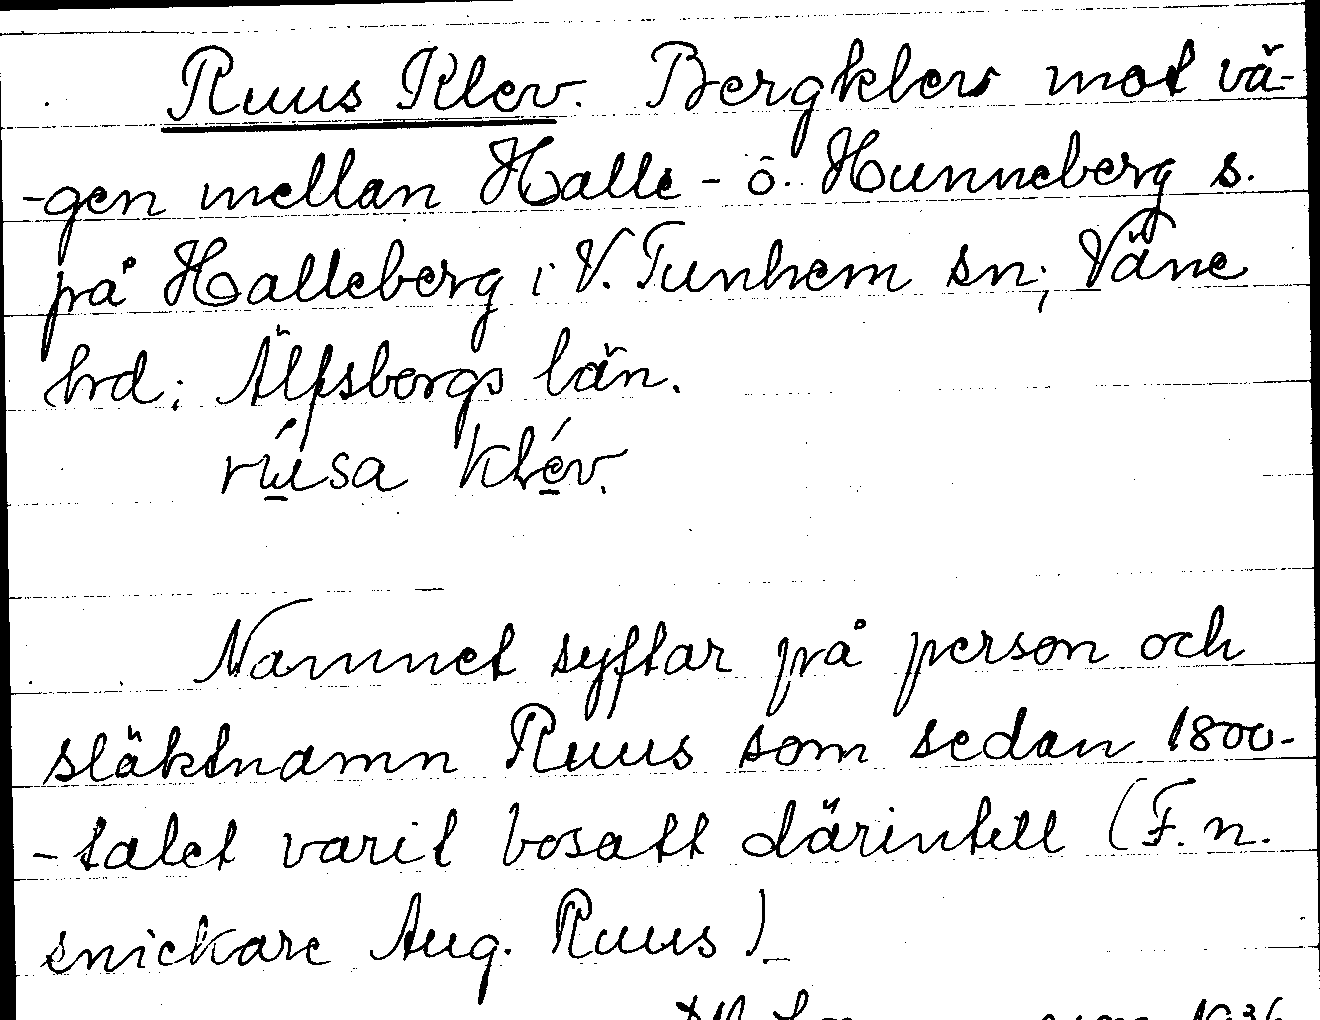 Ruus Klev. Bergklev mot vä-
-gen mellan Halle- o. Hunneberg s.
på Halleberg i V. Tunhem sn; Väne
hrd; Älfsborgs län.
rúsa klév.
Namnet syftar på person och
släktnamn Ruus som sedan 1800-
-talet varit bosatt därintill (F.n.
snickare Aug. Ruus).
1936